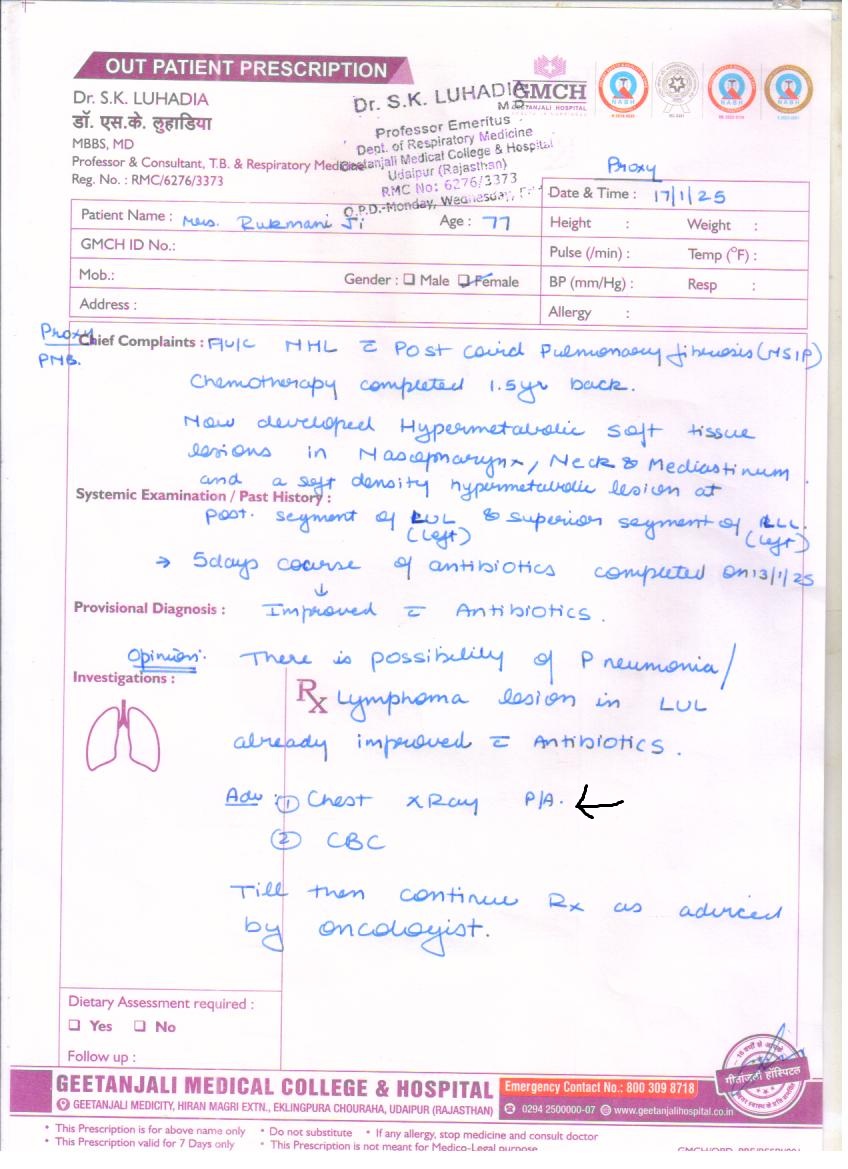 OUT PATIENT PRESCRIPTION
Dr. S.K. LUHADIA
डॉ. एस.के. लुहाडिया
MBBS, MD
Professor & Consultant, T.B. & Respiratory Medicine
Reg. No. : RMC/6276/3373
Dr. S.K. LUHADIA
M.D.
Professor Emeritus
Dept. of Respiratory Medicine
Geetanjali Medical College & Hospital
Udaipur (Rajasthan)
RMC No: 6276/3373
O.P.D.-Monday, Wednesday,
GMCH
GEETANJALI HOSPITAL
NABH
NABH
NABH
Proxy
Date & Time : 17/1/25
Patient Name : Mrs. Rukmani Ji Age : 77
Height : Weight :
GMCH ID No.:
Pulse (/min) : Temp (°F) :
Mob.: Gender : ☐ Male ☑ Female
BP (mm/Hg) : Resp :
Address :
Allergy :
Proxy
PMB.
Chief Complaints : F/U/C NHL c̄ Post covid Pulmonary fibrosis (NSIP)
Chemotherapy completed 1.5yr back.
Now developed Hypermetabolic soft tissue
lesions in Nasopharynx, Neck & Mediastinum.
and a soft density hypermetabolic lesion at
Systemic Examination / Past History :
post. segment of LUL & superior segment of LLL.
(left) (left)
→ 5days course of antibiotics completed on 13/1/25
↓
Provisional Diagnosis : Improved c̄ Antibiotics.
Opinion: There is possibility of Pneumonia/
Investigations :
Rx Lymphoma lesion in LUL
already improved c̄ Antibiotics.
Adv ① Chest xRay P/A. ←
② CBC
Till then continue Rx as adviced
by oncologist.
Dietary Assessment required :
☐ Yes ☐ No
Follow up :
गीतांजली हॉस्पिटल
GEETANJALI MEDICAL COLLEGE & HOSPITAL
Emergency Contact No.: 800 309 8718
GEETANJALI MEDICITY, HIRAN MAGRI EXTN., EKLINGPURA CHOURAHA, UDAIPUR (RAJASTHAN)
0294 2500000-07 www.geetanjalihospital.co.in
• This Prescription is for above name only • Do not substitute • If any allergy, stop medicine and consult doctor
• This Prescription valid for 7 Days only • This Prescription is not meant for Medico-Legal purpose